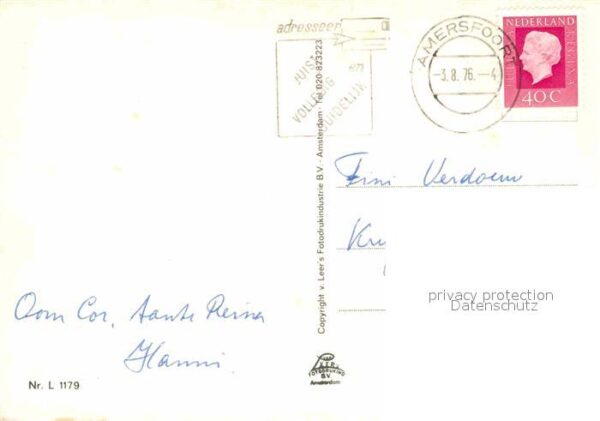 adresseer
JUIST
VOLLEDIG
en
DUIDELIJK
AMERSFOORT
-3.8.76.-4
NEDERLAND
JULIANA REGINA
40C
Copyright v. Leer's Fotodrukindustrie B.V. - Amsterdam - Tel 020-823223
Fini Verdouw
privacy protection
Datenschutz
Oom Cor, tante Reina
Hanni
Nr. L 1179
FOTODRUKIND
B.V.
Amsterdam